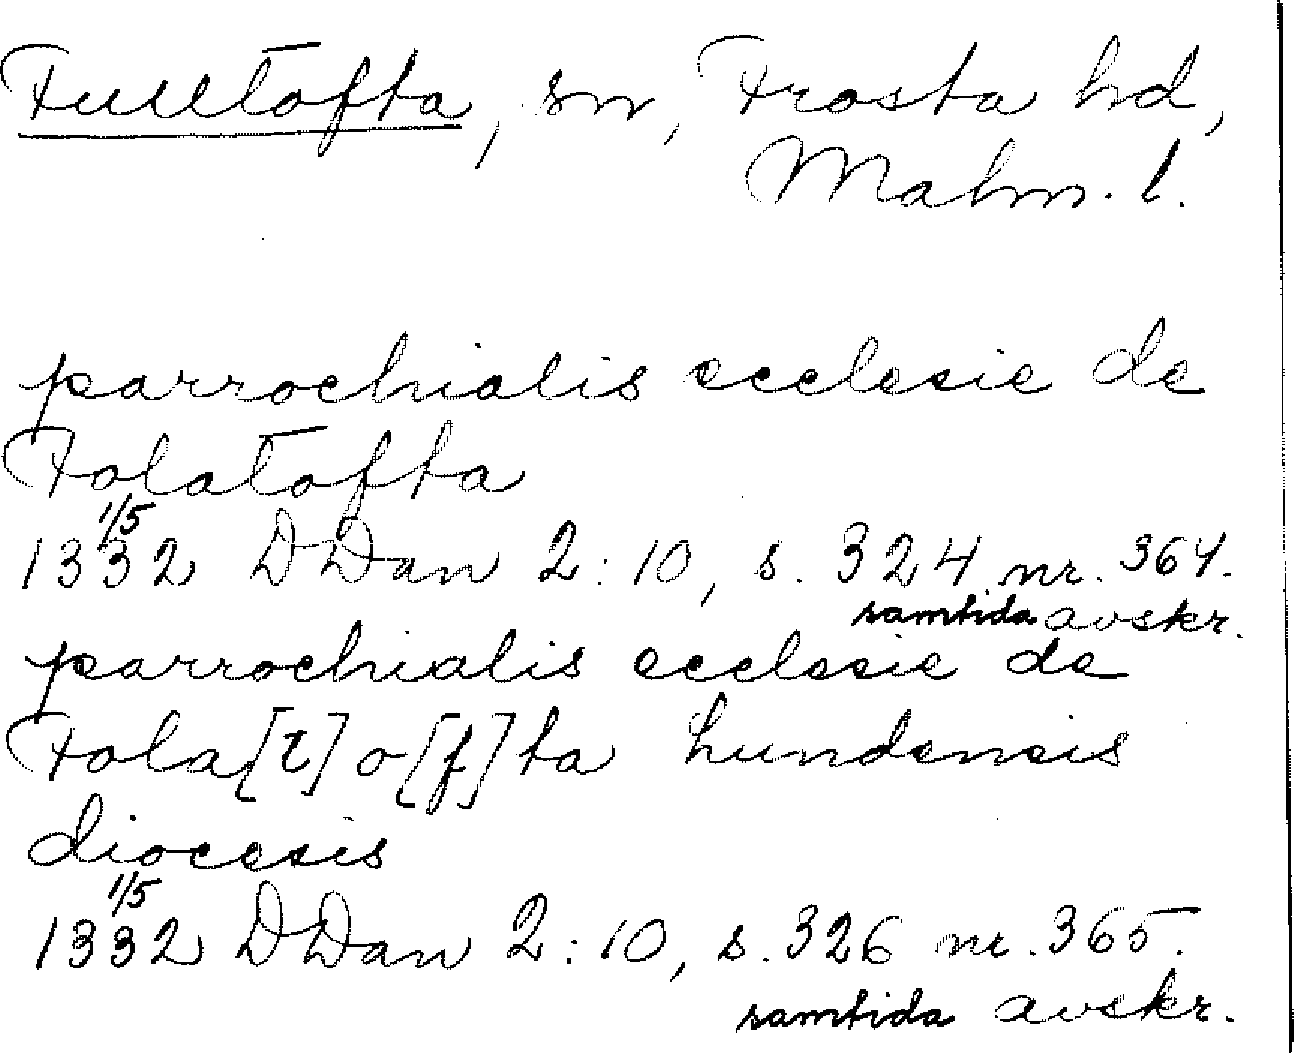 Fulltofta, sn, Frosta hd,
Malm. l.
parrochialis ecclesie de
Folatofta
1/5
1332 DDan 2:10, s. 324 nr. 364.
samtida avskr.
parrochialis ecclesie de
Fola[t]o[f]ta Lundensis
diocesis
1/5
1332 DDan 2:10, s. 326 nr. 365.
samtida avskr.